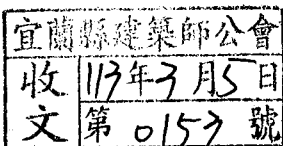 宜蘭縣建築師公會
收文
113年3月5日
第0153號